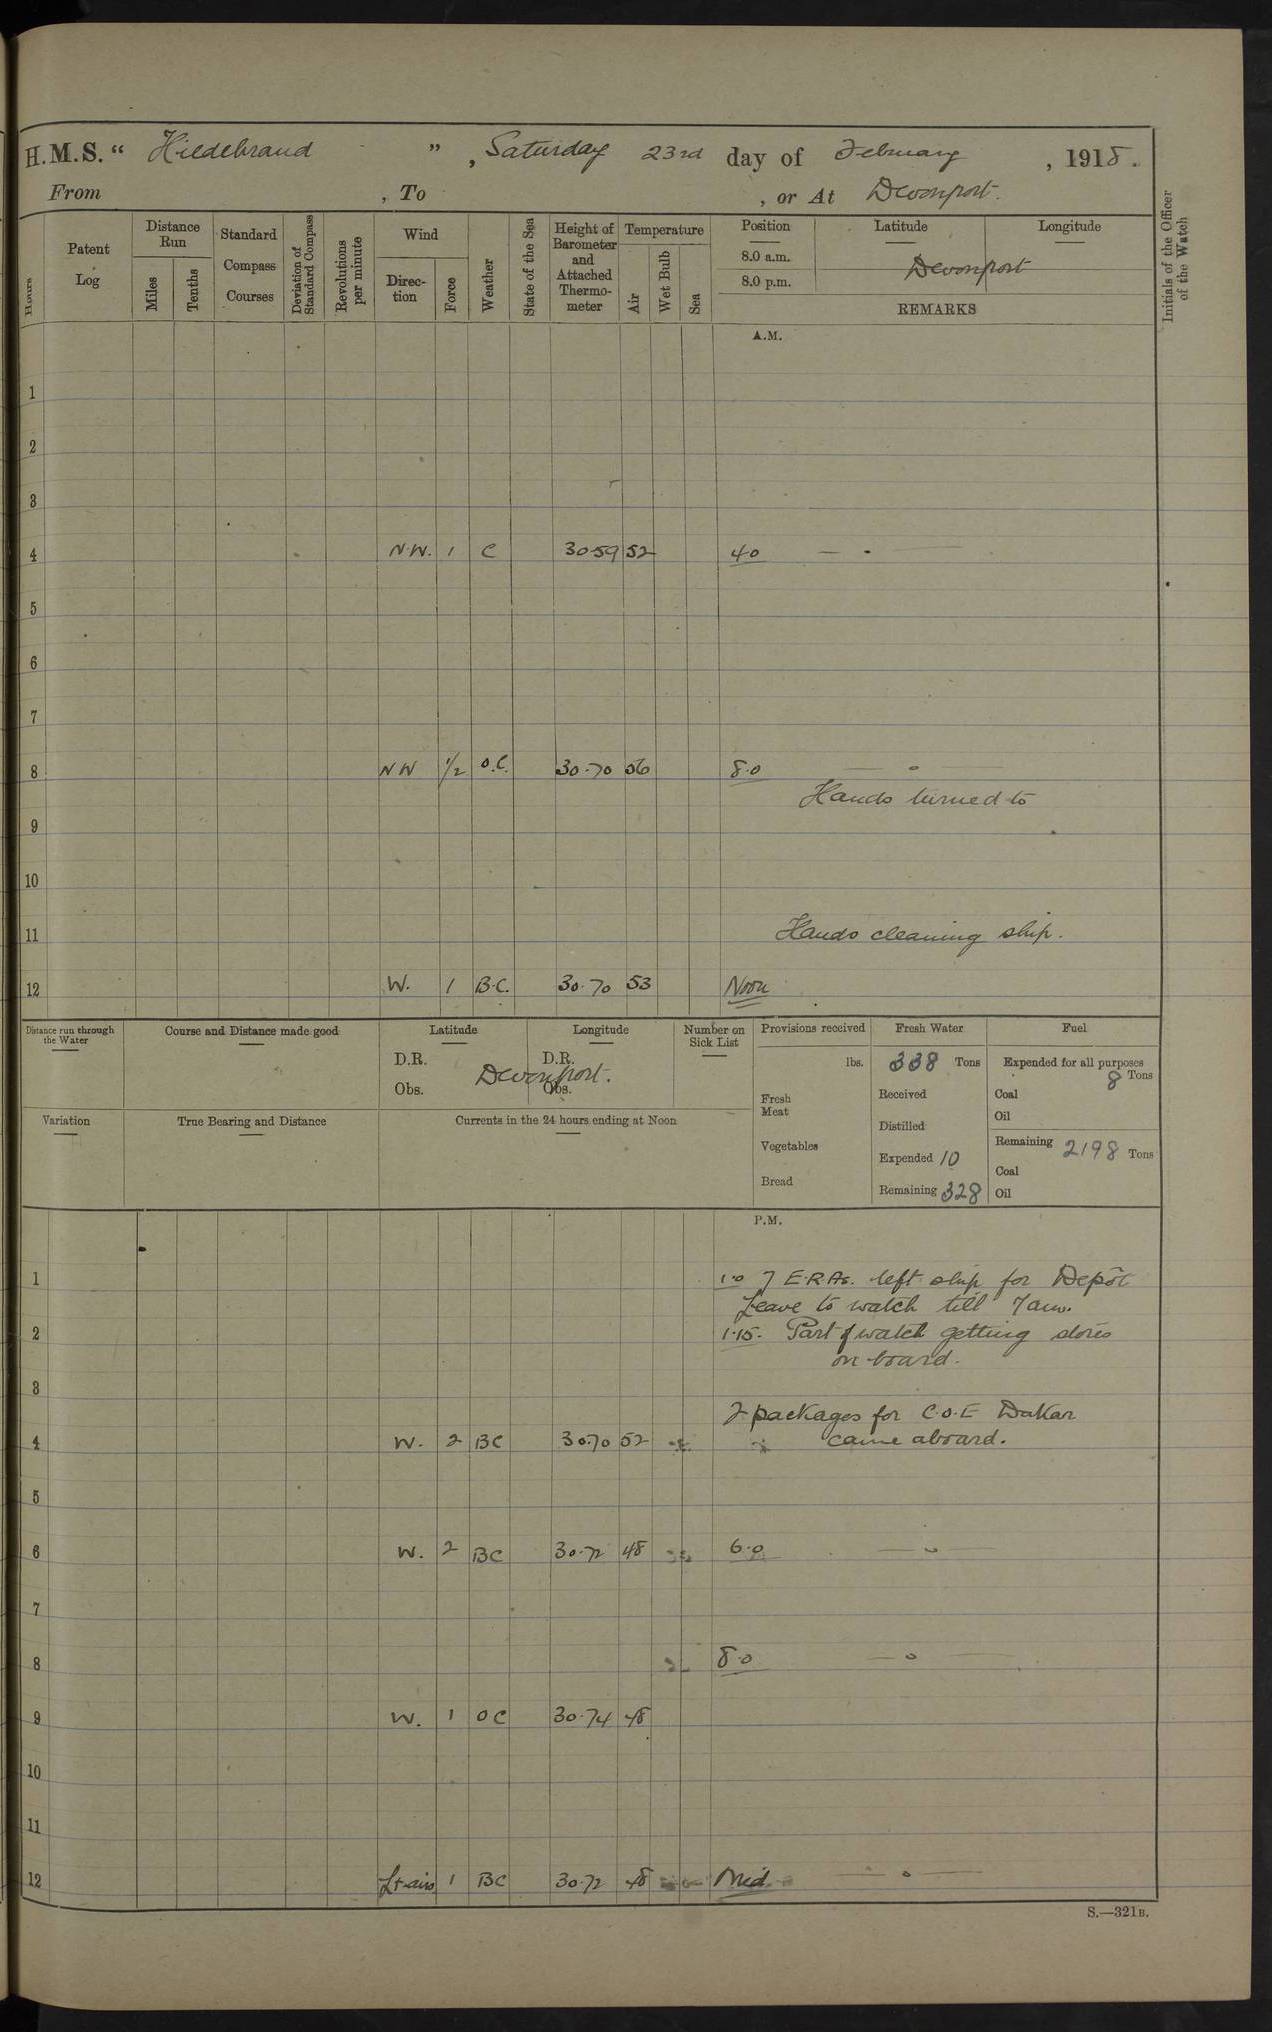 H.M.S. “ Hildebrand ” , Saturday 23rd day of February , 1918.
From , To , or At Devonport.
Hours
Patent Log
Distance Run
Miles
Tenths
Standard Compass Courses
Deviation of Standard Compass
Revolutions per minute
Wind
Direc-tion
Force
Weather
State of the Sea
Height of Barometer and Attached Thermo-meter
Temperature
Air
Wet Bulb
Sea
Position Latitude Longitude
8.0 a.m.
8.0 p.m.
Devonport
REMARKS
Initials of the Officer of the Watch
A.M.
1
2
3
4 N.W. 1 C 30.59 52 4.0 — " —
5
6
7
8 NW 1/2 O.C. 30.70 56 8.0 — " —
Hands turned to
9
10
11 Hands cleaning ship.
12 W. 1 B.C. 30.70 53 Noon
Distance run through the Water
Course and Distance made good
Latitude Longitude
D.R. D.R.
Devonport.
Obs. Obs.
Number on Sick List
Provisions received
lbs.
Fresh Meat
Vegetables
Bread
Fresh Water
338 Tons
Received
Distilled
Expended 10
Remaining 328
Fuel
Expended for all purposes
8 Tons
Coal
Oil
Remaining 2198 Tons
Coal
Oil
Variation
True Bearing and Distance
Currents in the 24 hours ending at Noon
P.M.
1 1.0 7 E.R.As. left ship for Depôt
Leave to watch till 7am.
2 1.15. Part of watch getting stores
on board.
3
2 packages for C.O.E Dakar
4 W. 2 BC 30.70 52 came aboard.
5
6 W. 2 BC 30.72 48 6.0 — " —
7
8 8.0 — " —
9 W. 1 OC 30.74 48
10
11
12 Lt airs 1 BC 30.72 48 Mid. — " —
S.—321B.